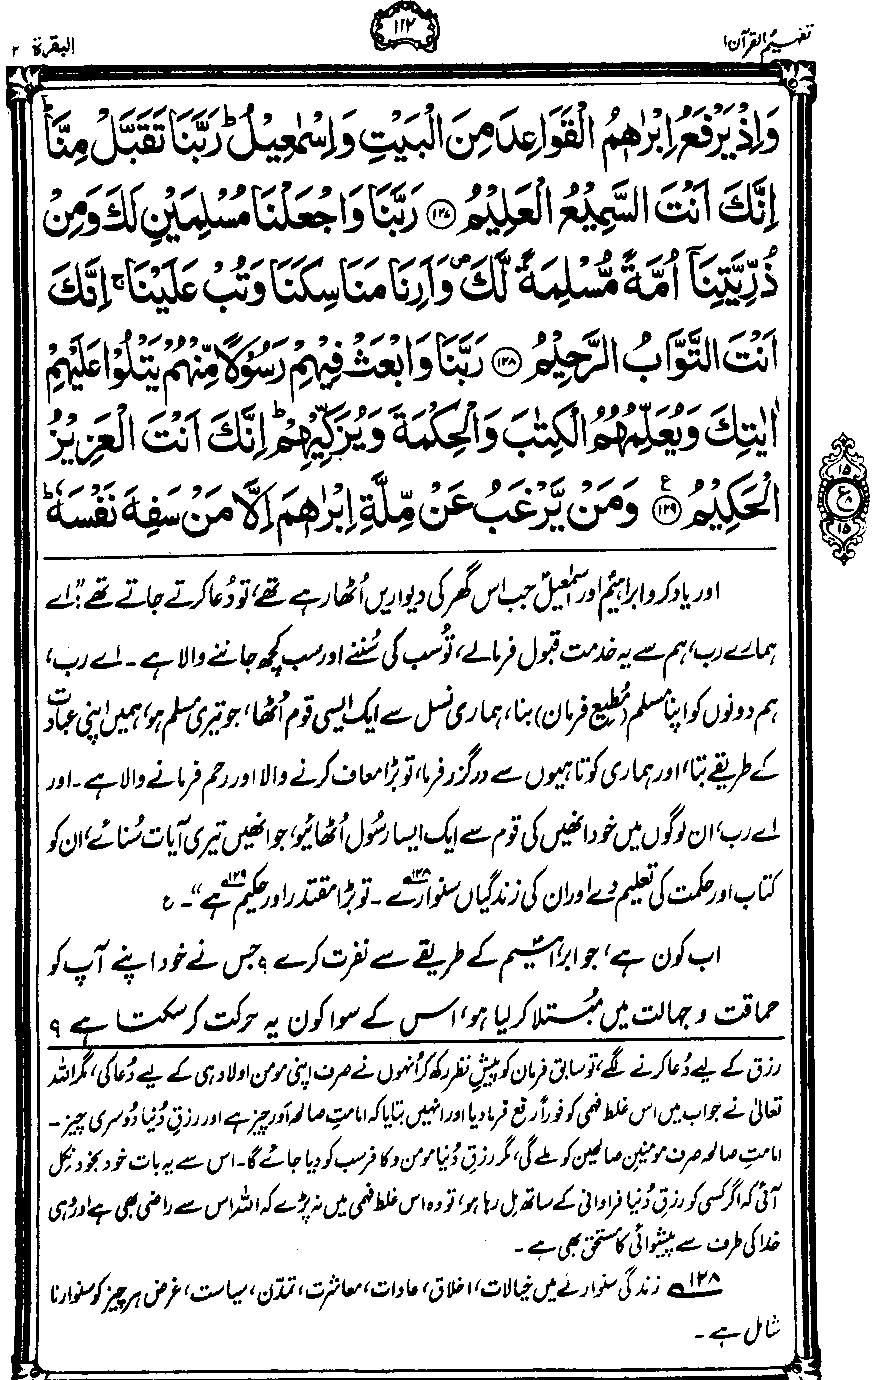 تفہیم القرآن ۱
۱۱۲
البقرۃ ۲
وَاِذْ يَرْفَعُ اِبْرٰهٖمُ الْقَوَاعِدَ مِنَ الْبَيْتِ وَاِسْمٰعِيْلُ ؕ رَبَّنَا تَقَبَّلْ مِنَّا ؕ
اِنَّكَ اَنْتَ السَّمِيْعُ الْعَلِيْمُ ﴿۱۲۷﴾ رَبَّنَا وَاجْعَلْنَا مُسْلِمَيْنِ لَكَ وَمِنْ
ذُرِّيَّتِنَاۤ اُمَّةً مُّسْلِمَةً لَّكَ ۪ وَاَرِنَا مَنَاسِكَنَا وَتُبْ عَلَيْنَا ۚ اِنَّكَ
اَنْتَ التَّوَّابُ الرَّحِيْمُ ﴿۱۲۸﴾ رَبَّنَا وَابْعَثْ فِيْهِمْ رَسُوْلًا مِّنْهُمْ يَتْلُوْا عَلَيْهِمْ
اٰيٰتِكَ وَيُعَلِّمُهُمُ الْكِتٰبَ وَالْحِكْمَةَ وَيُزَكِّيْهِمْ ؕ اِنَّكَ اَنْتَ الْعَزِيْزُ
الْحَكِيْمُ ﴿۱۲۹﴾ ع وَمَنْ يَّرْغَبُ عَنْ مِّلَّةِ اِبْرٰهٖمَ اِلَّا مَنْ سَفِهَ نَفْسَهٗ ؕ
۱۵
ع ۸
۱۵
اور یاد کرو ابراہیمؑ اور اسمٰعیلؑ جب اس گھر کی دیواریں اُٹھا رہے تھے، تو دُعا کرتے جاتے تھے: ”اے
ہمارے رب، ہم سے یہ خدمت قبول فرمالے، تُو سب کی سُننے اور سب کچھ جاننے والا ہے۔ اے رب،
ہم دونوں کو اپنا مسلم (مُطیع فرمان) بنا، ہماری نسل سے ایک ایسی قوم اُٹھا، جو تیری مسلم ہو، ہمیں اپنی عبادت
کے طریقے بتا، اور ہماری کوتاہیوں سے درگزر فرما، تو بڑا معاف کرنے والا اور رحم فرمانے والا ہے۔ اور
اے رب، ان لوگوں میں خود انھیں کی قوم سے ایک ایسا رسُول اُٹھائیو، جو انھیں تیری آیات سُنائے، ان کو
کتاب اور حکمت کی تعلیم دے اور ان کی زندگیاں سنوارے۱۲۸۔ تو بڑا مقتدر اور حکیم ہے“۱۲۹۔ ع
اب کون ہے، جو ابراہیمؑ کے طریقے سے نفرت کرے؟ جس نے خود اپنے آپ کو
حماقت و جہالت میں مُبتلا کر لیا ہو، اس کے سوا کون یہ حرکت کر سکتا ہے؟
رزق کے لیے دُعا کرنے لگے، تو سابق فرمان کو پیشِ نظر رکھ کر اُنہوں نے صرف اپنی مومن اولاد ہی کے لیے دُعا کی، مگر اللہ
تعالیٰ نے جواب میں اس غلط فہمی کو فوراً رفع فرما دیا اور انہیں بتایا کہ امامتِ صالحہ اَور چیز ہے اور رزقِ دُنیا دُوسری چیز۔
امامتِ صالحہ صرف مومنینِ صالحین کو ملے گی، مگر رزقِ دُنیا مومن و کافر سب کو دیا جائے گا۔ اس سے یہ بات خود بخود نکل
آئی کہ اگر کسی کو رزقِ دُنیا فراوانی کے ساتھ مل رہا ہو، تو وہ اس غلط فہمی میں نہ پڑے کہ اللہ اس سے راضی بھی ہے اور وُہی
خدا کی طرف سے پیشوائی کا مستحق بھی ہے۔
۱۲۸ زندگی سنوارنے میں خیالات، اخلاق، عادات، معاشرت، تمدّن، سیاست، غرض ہر چیز کو سنوارنا
شامل ہے۔